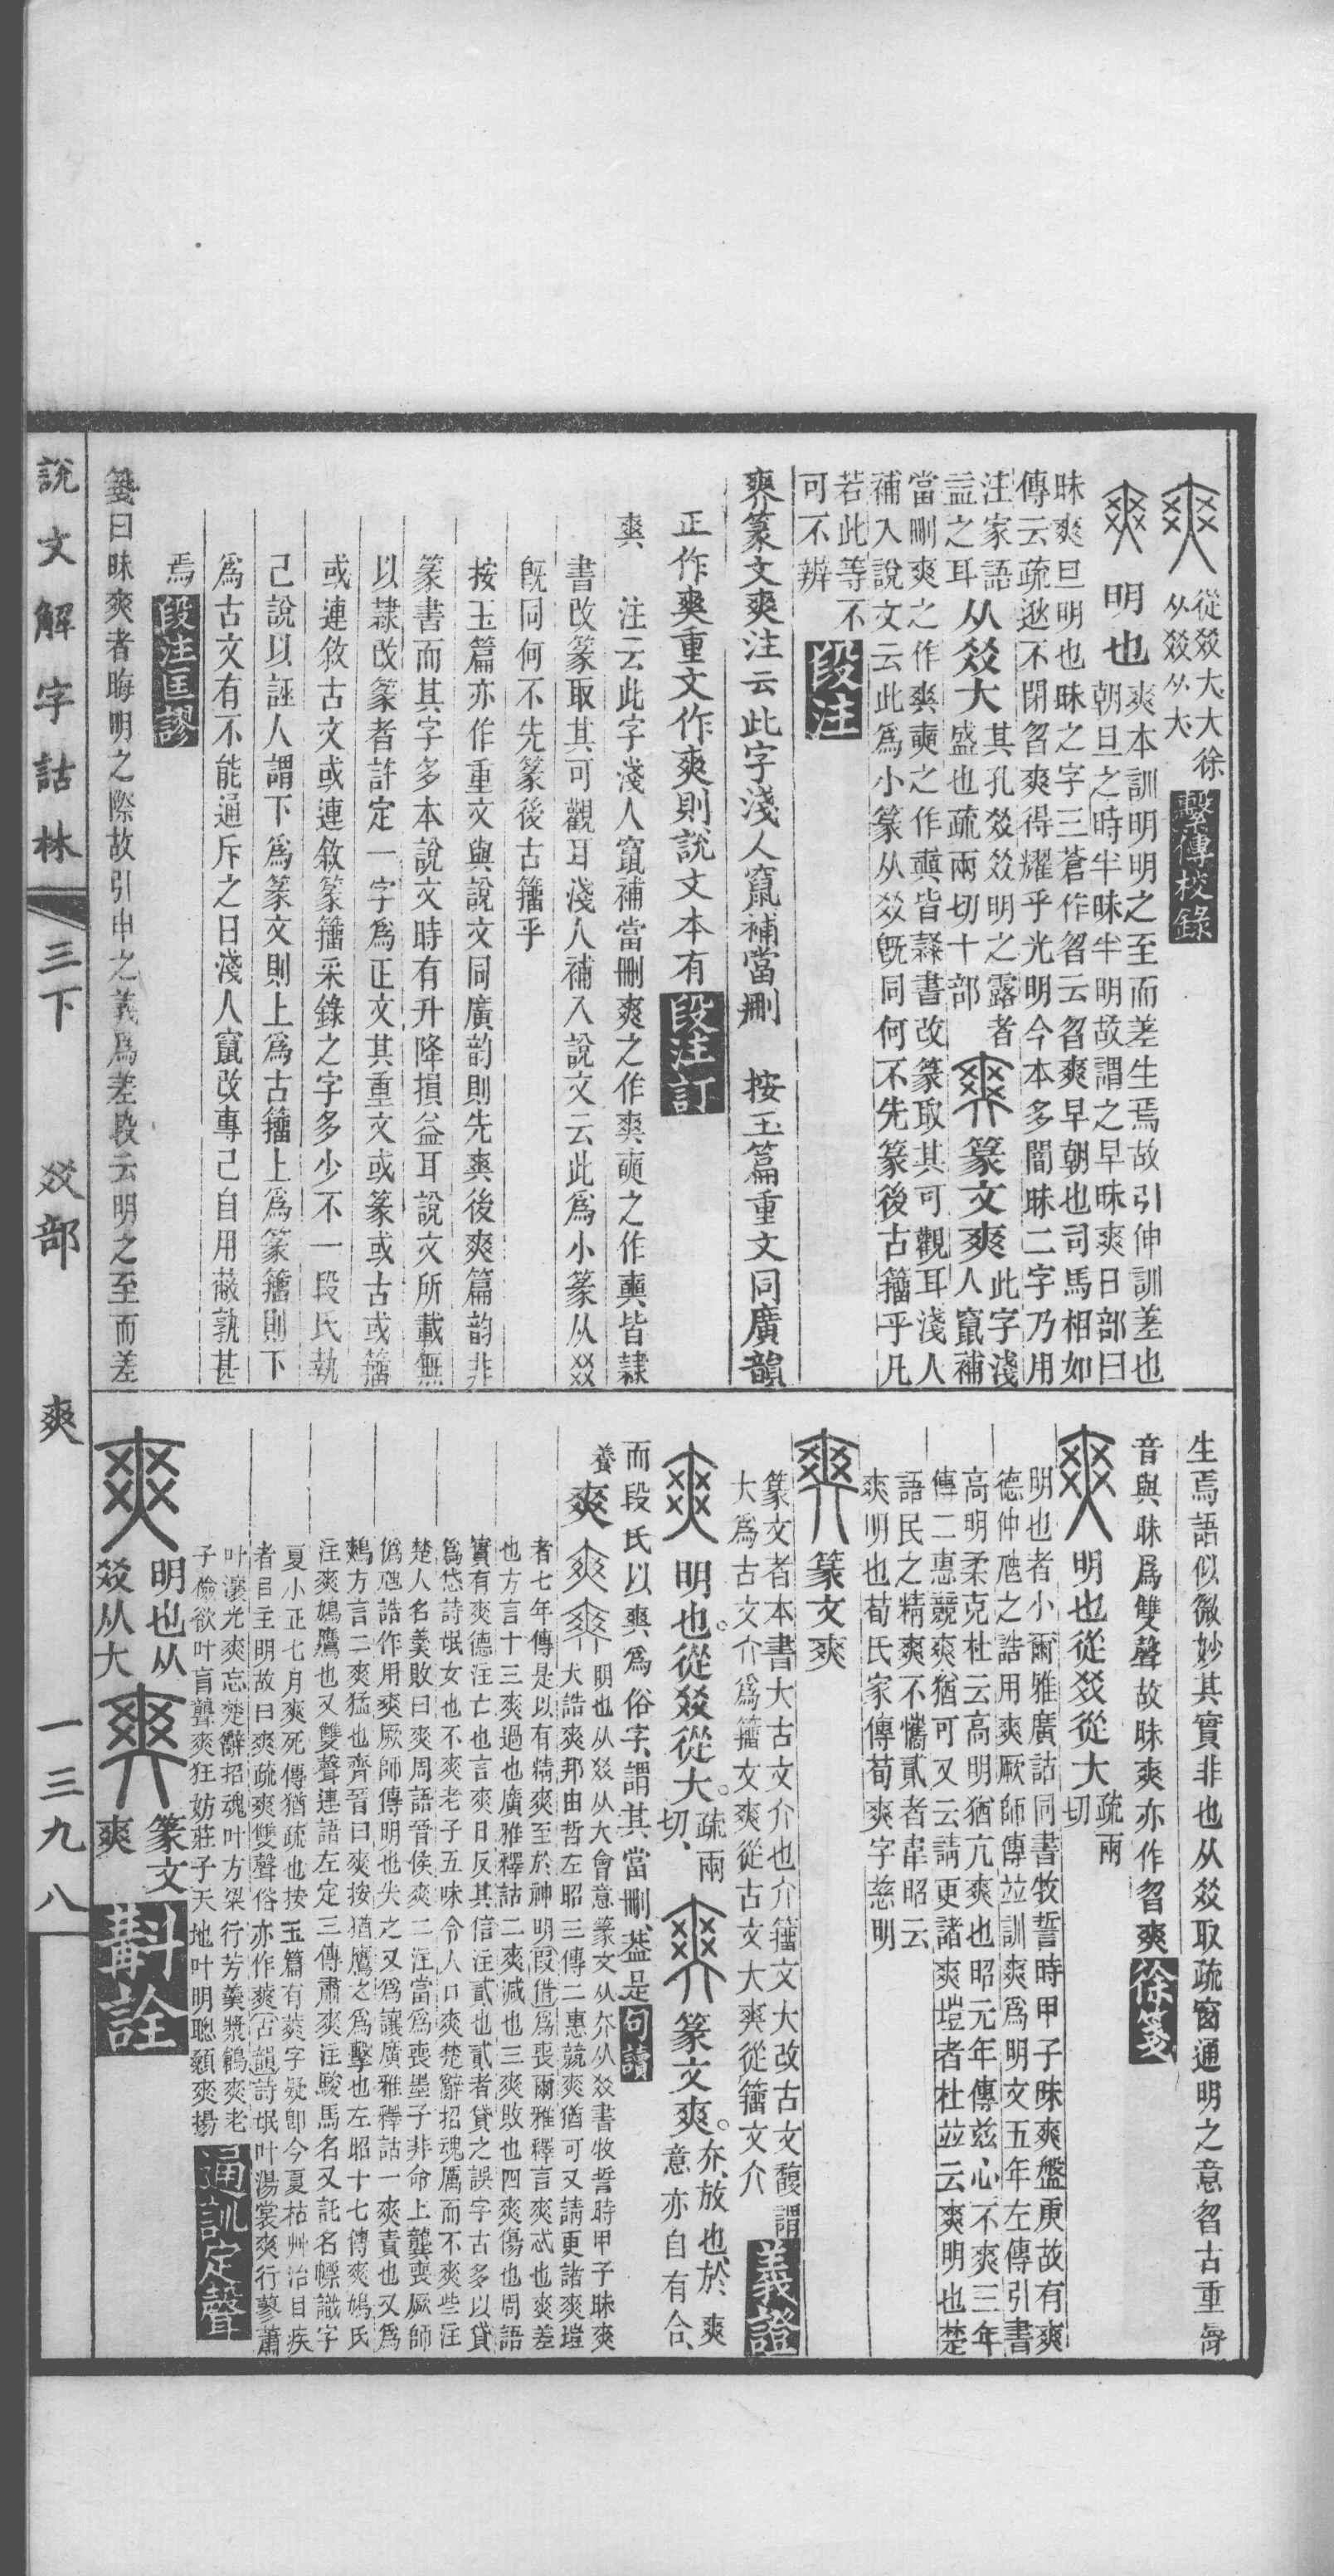 從㸚大大徐
从㸚从大
繫傳校錄
明也
爽本訓明明之至而差生焉故引伸訓差也
朝旦之時半昧半明故謂之早昧爽日部曰
昧爽旦明也昧之字三蒼作曶云曶爽早朝也司馬相如
傳云疏逖不閉曶爽得耀乎光明今本多闇昧二字乃用
注家語
益之耳
从㸚大
其孔㸚㸚明之露者
盛也疏兩切十部
篆文爽
此字淺
人竄補
當刪爽之作奭之作皆隸書改篆取其可觀耳淺人
補入說文云此為小篆从㸚既同何不先篆後古籀乎凡
若此等不
可不辨
段注
篆文爽注云此字淺人竄補當刪 按玉篇重文同廣韻
正作爽重文作爽則說文本有
段注訂
爽 注云此字淺人竄補當刪爽之作奭之作皆隸
書改篆取其可觀耳淺人補入說文云此為小篆从㸚
既同何不先篆後古籀乎
按玉篇亦作重文與說文同廣韵則先爽後爽篇韵非
篆書而其字多本說文時有升降損益耳說文所載無
以隷改篆者許定一字爲正文其重文或篆或古或籀
或連敘古文或連敘篆籀采錄之字多少不一段氏執
己說以誣人謂下爲篆文則上爲古籀上爲篆籀則下
爲古文有不能通斥之曰淺人竄改專己自用蔽孰甚
焉
段注匡謬
箋曰昧爽者晦明之際故引申之義爲差段云明之至而差
生焉語似微妙其實非也从㸚取疏窗通明之意曶古重脣
音與昧爲雙聲故昧爽亦作曶爽
徐箋
明也從㸚從大
疏兩
切
明也者小爾雅廣詁同書牧誓時甲子昧爽盤庚故有爽
德仲虺之誥用爽厥師傳竝訓爽爲明文五年左傳引書
高明柔克杜云高明猶亢爽也昭元年傳兹心不爽三年
傳二惠競爽猶可又云請更諸爽塏者杜竝云爽明也楚
語民之精爽不懈貳者韋昭云
爽明也荀氏家傳荀爽字慈明
篆文爽
篆文者本書大古文介也介籀文大改古文馥謂
大爲古文介爲籀文爽從古文大爽從籀文介
義證
明也。從㸚從大。
疏兩
切、
篆文爽。
夰、放也、於爽
意亦自有合、
而段氏以爽爲俗字、謂其當刪、葢是
句讀
養 爽
明也从㸚从大會意篆文从夰从㸚書牧誓時甲子昧爽
大誥爽邦由哲左昭三傳二惠競爽猶可又請更諸爽塏
者七年傳是以有精爽至於神明叚借爲喪爾雅釋言爽忒也爽差
也方言十三爽過也廣雅釋詁二爽減也三爽敗也四爽傷也周語
實有爽德注亡也言爽日反其信注貳也貳者貸之誤字古多以貸
爲忒詩氓女也不爽老子五味令人口爽楚辭招魂厲而不爽些注
楚人名羹敗曰爽周語晉侯爽二注當爲喪墨子非命上龔喪厥師
僞虺誥作用爽厥師傳明也失之又爲讓廣雅釋詁一爽責也又爲
鷞方言二爽猛也齊晉曰爽按猶鷹之爲擊也左昭十七傳爽鳩氏
注爽鳩鷹也又雙聲連語左定三傳肅爽注駿馬名又託名幖識字
夏小正七月爽死傳猶疏也按玉篇有䔪字疑卽今夏枯艸治目疾
者目主明故曰爽疏爽雙聲俗亦作爽古韻詩氓叶湯裳爽行蓼蕭
叶瀼光爽忘楚辭招魂叶方粱行芳羹漿鶬爽老
子儉欲叶盲聾爽狂妨莊子天地叶明聰顙爽揚
通訓定聲
明也从
㸚从大
篆文
爽
斠詮
說文解字詁林 三下 㸚部 爽 一三九八